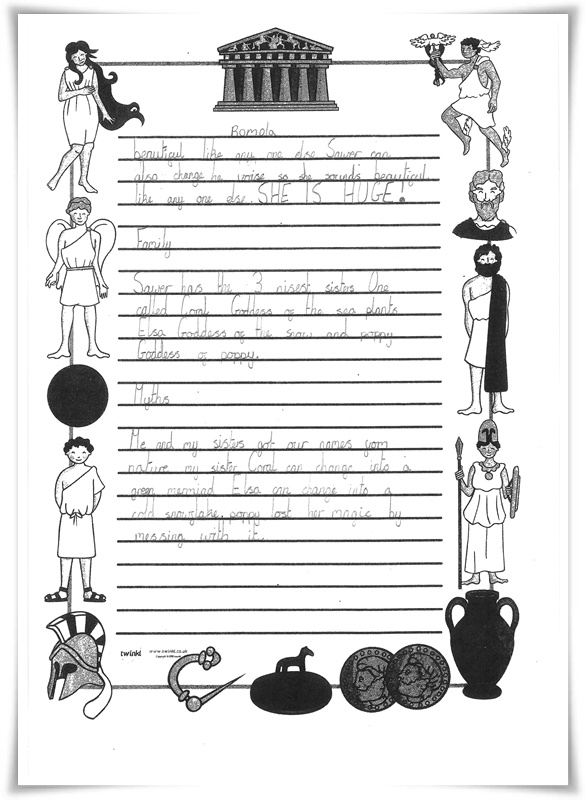 Romola
beautiful like any one else Sawer can
also change he voise so she sounds beautiful
like any one else. SHE IS HUGE!
Family
Sawer has the 3 nisest sisters. One
called Coral Goddess of the sea plants
Elsa Goddess of the snow and poppy
Goddess of poppy.
Myths
Me and my sisters got our names from
nature my sister Coral can change into a
green mermind Elsa can change into a
cold snowflake. poppy lost her magic by
messing with it.
twinkl www.twinkl.co.uk